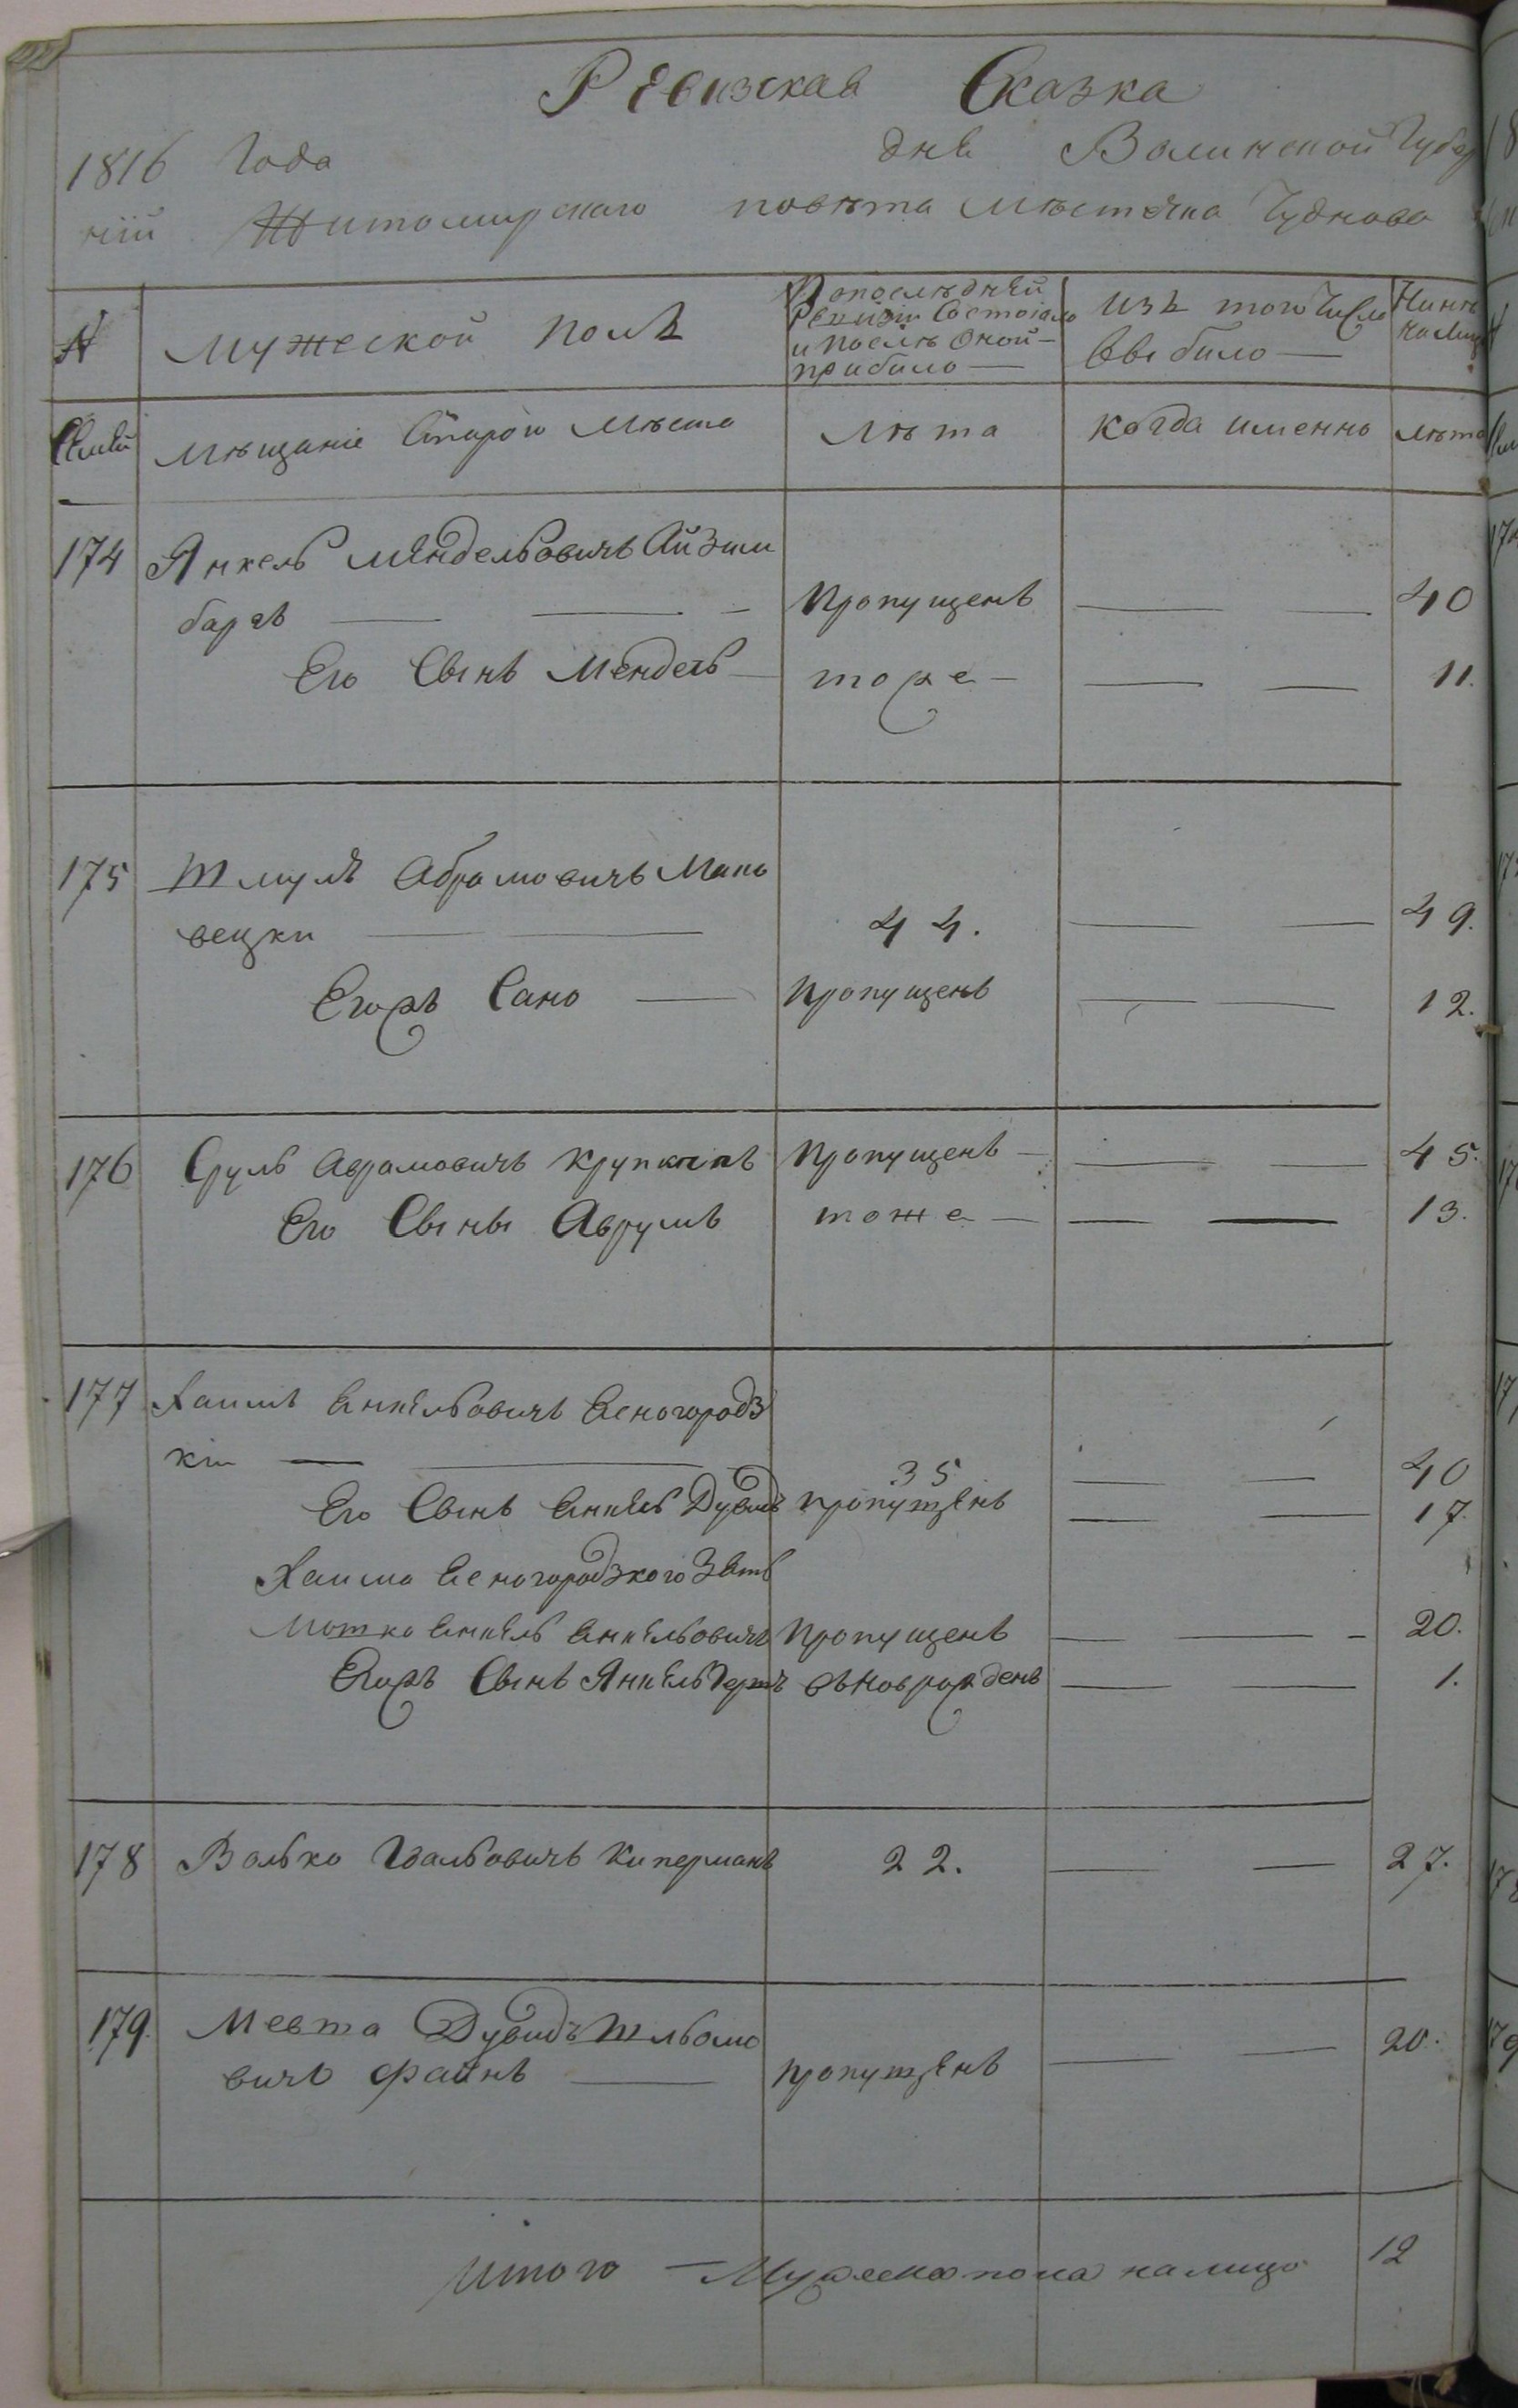 Ревизская Сказка
1816 Года дня Волинской Губер
ний Житомирского повѣта мѣстечка Чуднова
№ мужеской полъ
Попослѣдней
Ревизіи Состояло
и послѣ оной
прибило
изъ того числа
выбило
Нинѣ
налицо
Семей мѣщаніе Старой лѣта когда именно лѣта
174 Янкель Мендельовичъ Айзин
баргъ Пропущенъ 40
Его Сынъ Мендель тоже 11.
175 Шмулъ Абрамовичъ Мако
вецки 44. 49.
Егожъ Сано Пропущенъ 12.
176 Сруль Аврамовичъ Крупникъ Пропущенъ 45.
Его Сыны Аврумъ тоже 13.
177 Хаимъ Енкельовичъ Беногородз
кій 35 40
Его Сынъ Енкель Дувидъ пропущенъ 17.
Хаима Беногородзкого Зять
Мотко Енкель Енкельовичъ Пропущенъ 20.
Егожъ Сынъ Янкель Герш вновьрожденъ 1.
178 Волько Иовичъ Киперманъ 22. 27.
179. Мевта Дувидъ Шльомо
вичъ Файнъ пропущенъ 20.
Итого Мужеска пола налицо 12